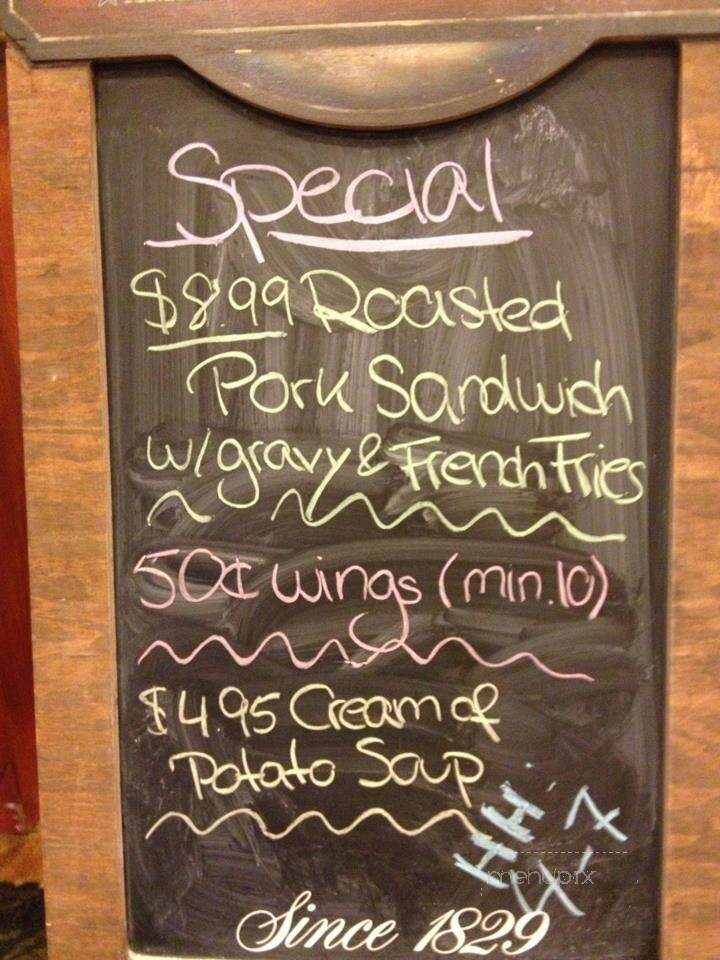 Special
$8.99 Roasted
Pork Sandwich
w/gravy & French Fries
50¢ wings (min.10)
$4.95 Cream of
Potato Soup
HH
4-7
menupix
Since 1829